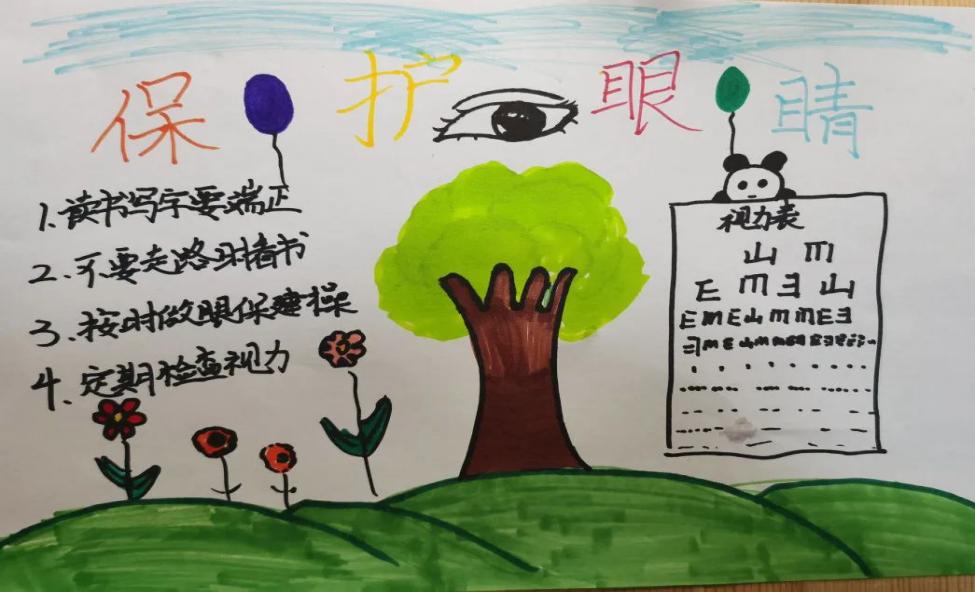 保护眼睛
1.读书写字要端正
2.不要走路时看书
3.按时做眼保建操
4.定期检查视力
视力表
山 m
E m ヨ 山
E m E 山 m m E ヨ